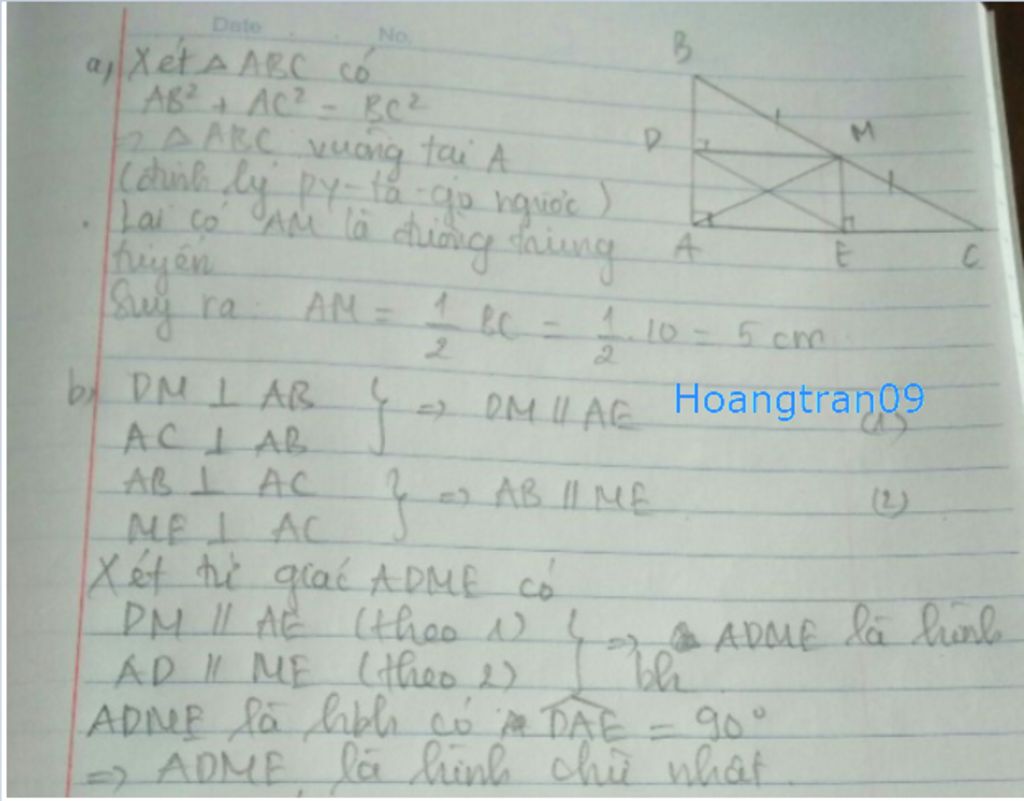 Date No.
a, Xét △ ABC có
AB² + AC² = BC²
=> △ ABC vuông tại A
(định lý py-ta-go ngược)
. Lại có AM là đường trung
tuyến
Suy ra: AM = 1/2 BC = 1/2 . 10 = 5 cm
B
D
M
A
E
C
b, DM ⊥ AB } => DM // AE (1)
AC ⊥ AB
Hoangtran09
AB ⊥ AC } => AB // ME (2)
ME ⊥ AC
Xét tứ giác ADME có
DM // AE (theo 1) } => ADME là hình
AD // ME (theo 2) bh
ADME là hbh có \widehat{DAE} = 90°
=> ADME là hình chữ nhật.